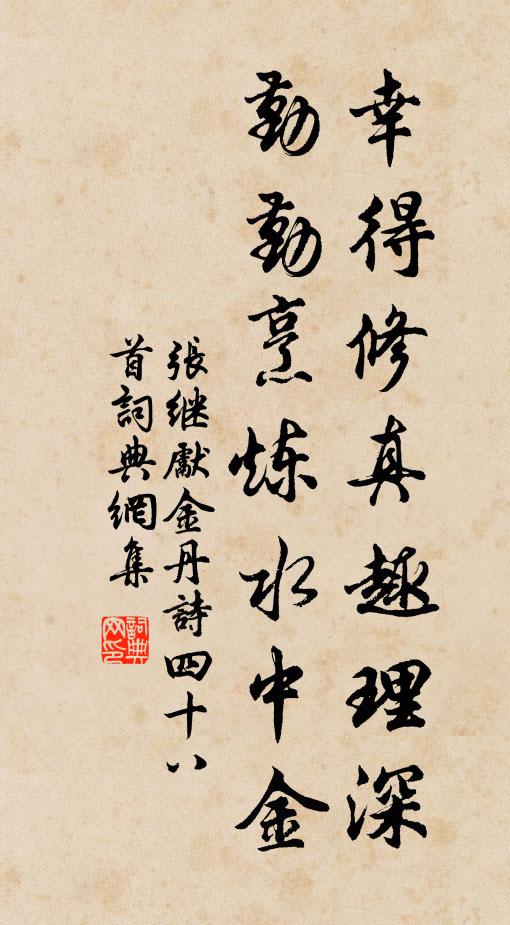 幸得修真趣理深
勤勤烹炼水中金
張继獻金丹詩四十八
首詞典網集
詞典網印